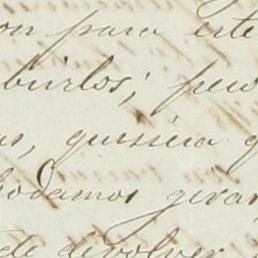 on para este
birlos; pero
as, quisiera q
podamos
de devolver